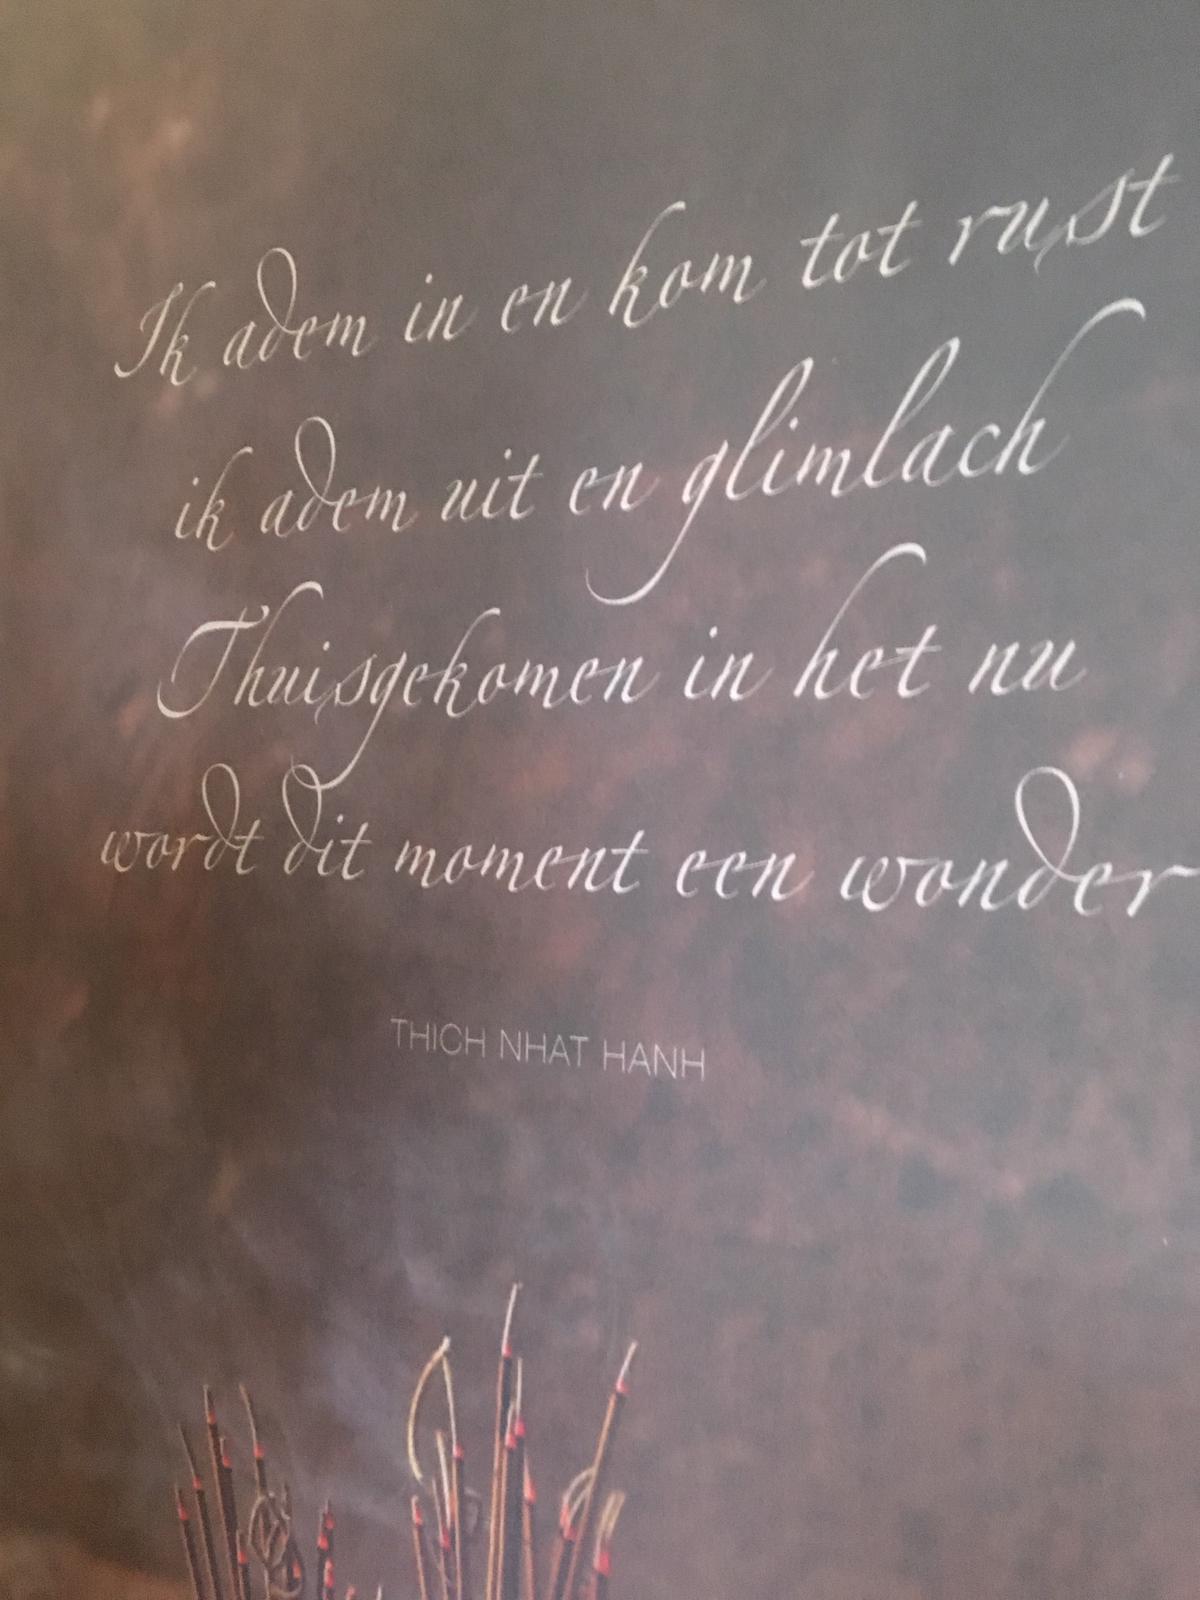 Ik adem in en kom tot rust
ik adem uit en glimlach
Thuisgekomen in het nu
wordt dit moment een wonder
THICH NHAT HANH